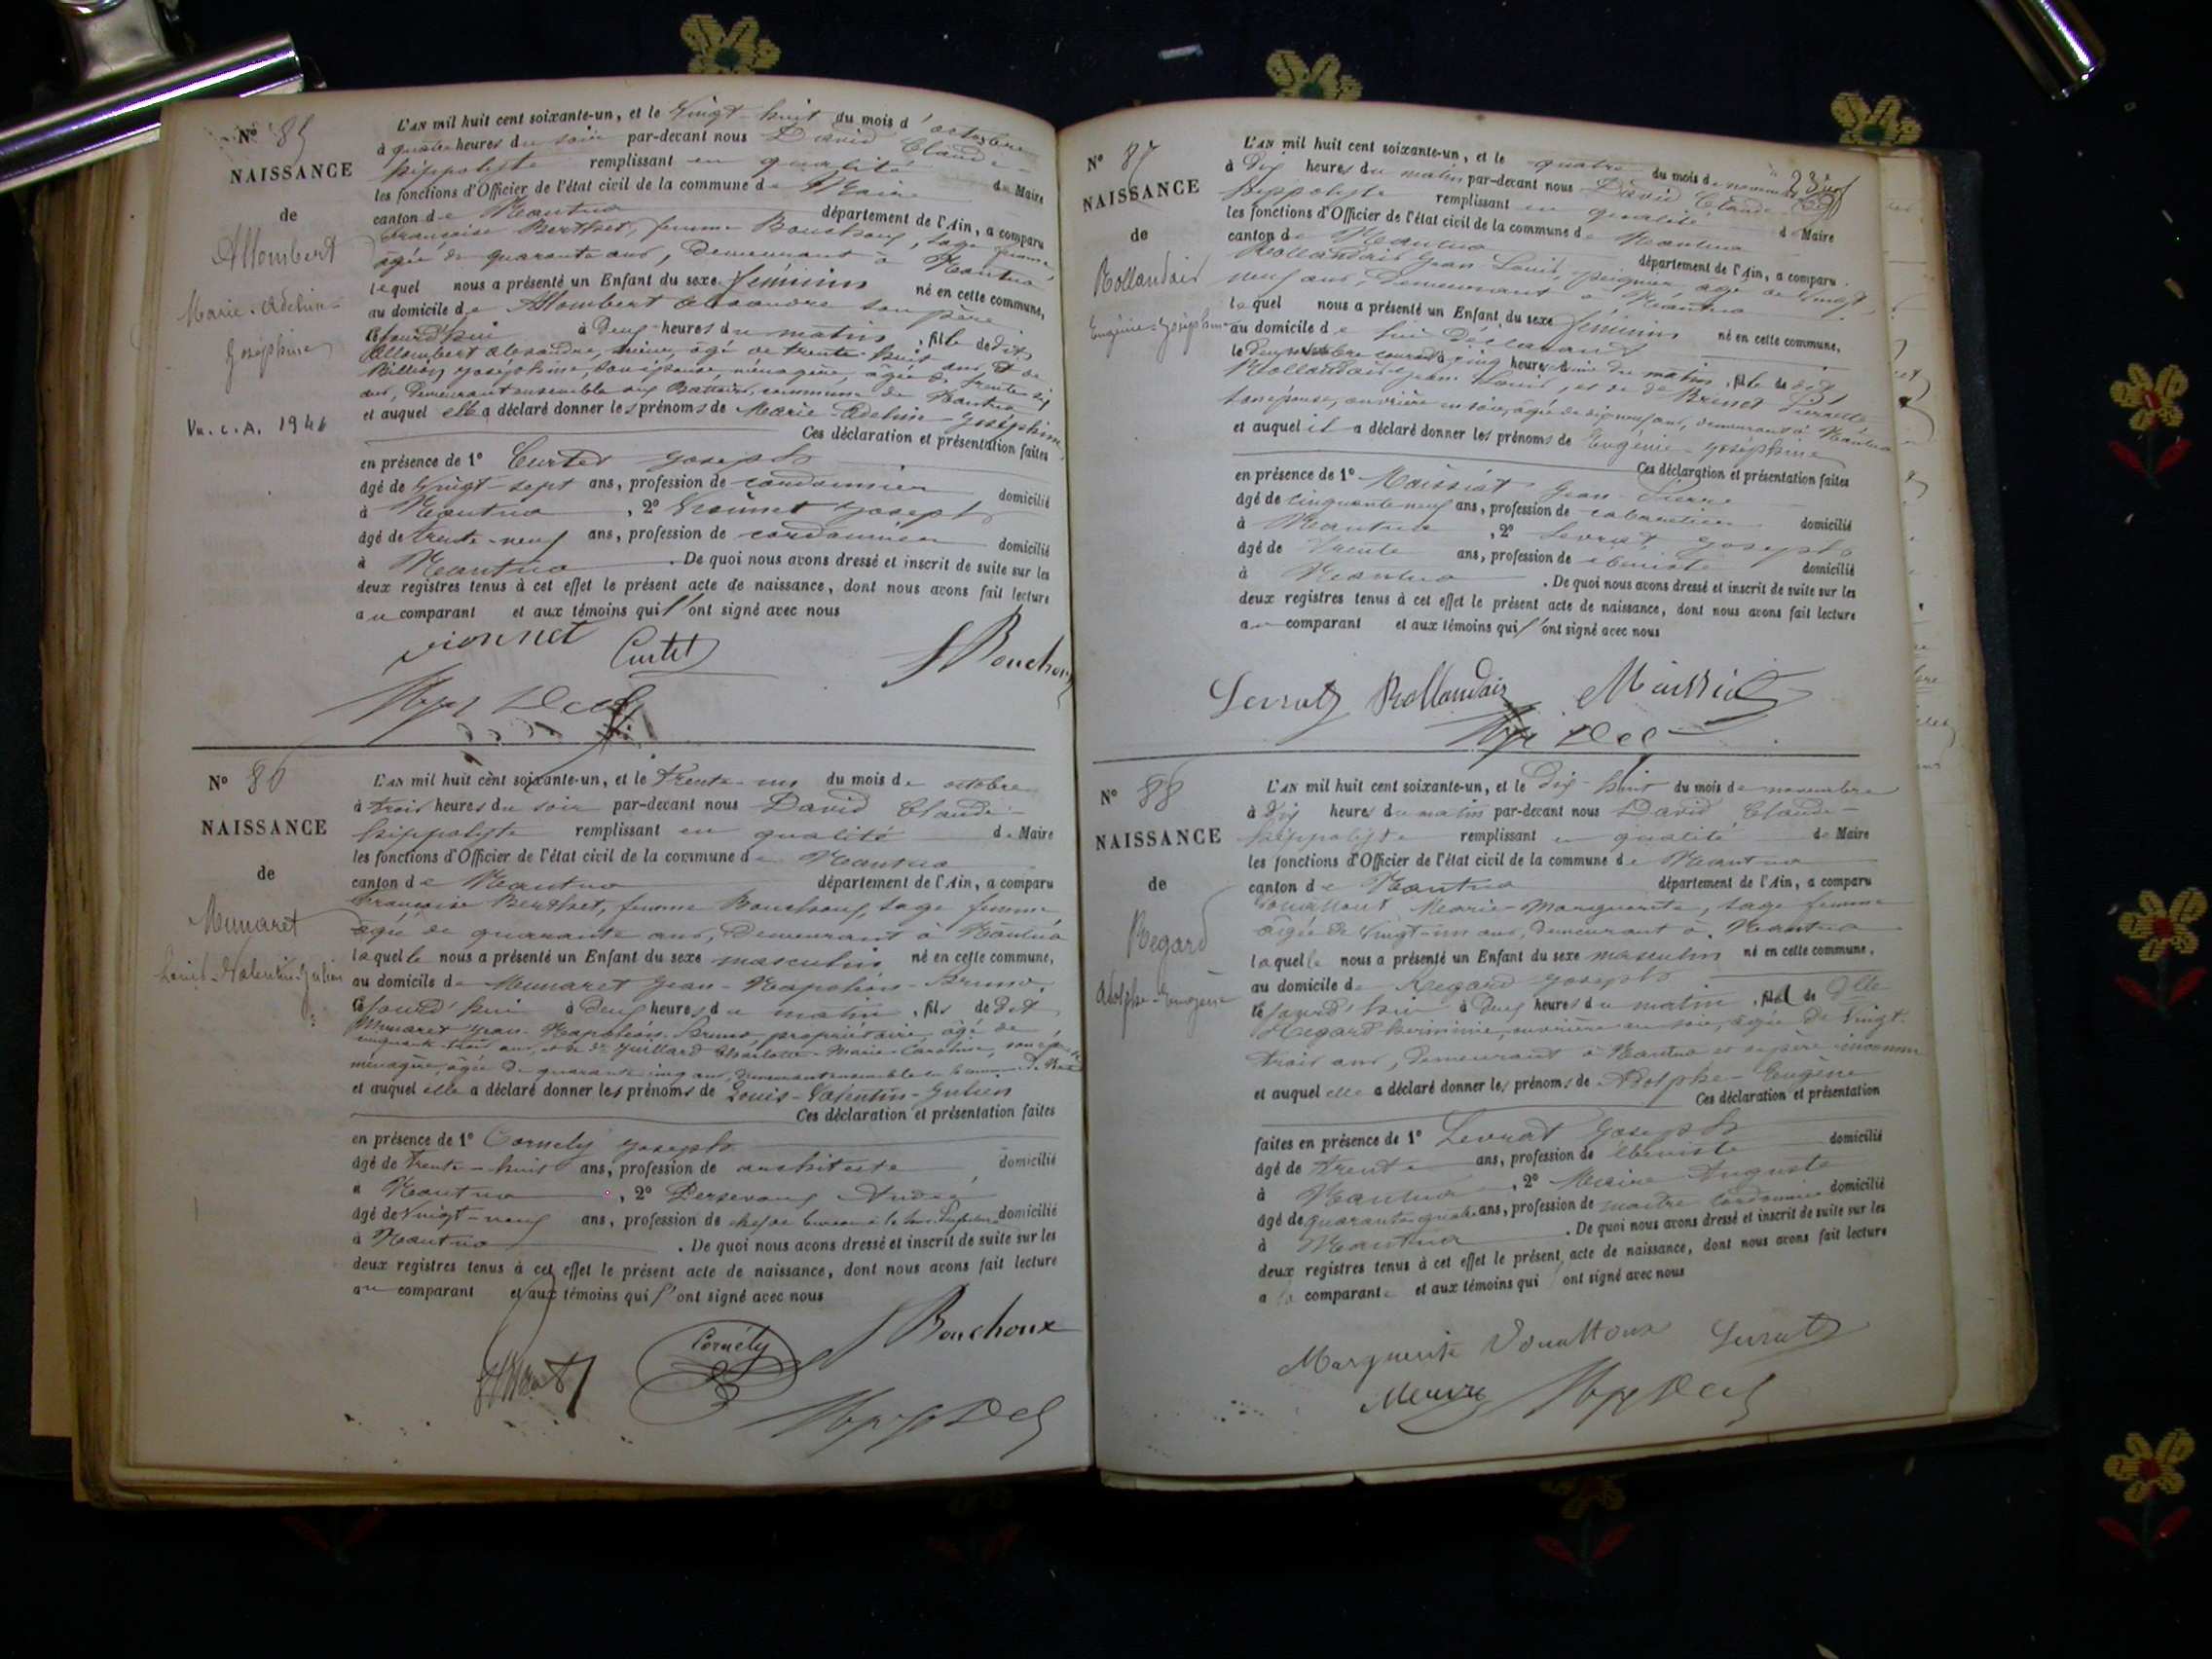 N° 85
NAISSANCE
de
Allombert
Marie-Adeline-
Joséphine
Vu. c. A. 1946
L'AN mil huit cent soixante-un, et le Vingt-huit du mois d'octobre
à quatre heures du soir par-devant nous David Claude-
hippolyte remplissant en qualité de Maire
les fonctions d'Officier de l'état civil de la commune de
canton de Nantua département de l'Ain, a comparu
Françoise Berthet, femme Bouchoux, sage femme,
agée de quarante ans, Demeurant à Nantua
lequel nous a présenté un Enfant du sexe féminin né en cette commune,
au domicile de Allombert alexandre son père
à Deux heures du matin, fille dedit
Allombert alexandre, âgé de trente huit ans et de
Billion Joséphine, son épouse, ménagère, âgée de trente six
ans, Demeurant ensemble aux Battoirs, commune de Nantua
et auquel elle a déclaré donner les prénoms de Marie-Adeline-Joséphine,
Ces déclaration et présentation faites
en présence de 1° Curtet Joseph
âgé de Vingt-sept ans, profession de cordonnier domicilié
à Nantua, 2° Vionnet Joseph
âgé de trente-neuf ans, profession de cordonnier domicilié
à Nantua. De quoi nous avons dressé et inscrit de suite sur les
deux registres tenus à cet effet le présent acte de naissance, dont nous avons fait lecture
au comparant et aux témoins qui l'ont signé avec nous
Vionnet Curtet Bouchoux
N° 86
NAISSANCE
de
Munaret
Louis-Valentin-Julien
L'AN mil huit cent soixante-un, et le trente-un du mois de octobre
à trois heures du soir par-devant nous David Claude-
hippolyte remplissant en qualité de Maire
les fonctions d'Officier de l'état civil de la commune de Nantua
canton de Nantua département de l'Ain, a comparu
Françoise Berthet, femme Bouchoux, sage femme
agée de quarante ans, Demeurant à Nantua
laquelle nous a présenté un Enfant du sexe masculin né en cette commune,
au domicile de Munaret Jean-Napoléon-Bruno,
à Deux heures du matin, fils dedit
Munaret Jean-Napoléon-Bruno, propriétaire, âgé de
cinquante trois ans, et de de Juillard Charlotte-Marie-Caroline, son épouse
ménagère, âgée de quarante cinq ans, demeurant ensemble
et auquel elle a déclaré donner les prénoms de Louis-Valentin-Julien
Ces déclaration et présentation faites
en présence de 1° Cornély Joseph
âgé de trente-huit ans, profession de architecte domicilié
à Nantua, 2° André
âgé de Vingt-neuf ans, profession de chef de bureau à la Sous Préfecture domicilié
à Nantua. De quoi nous avons dressé et inscrit de suite sur les
deux registres tenus à cet effet le présent acte de naissance, dont nous avons fait lecture
au comparant et aux témoins qui l'ont signé avec nous
Cornély Bouchoux
N° 87
NAISSANCE
de
Rollandais
Eugénie-Joséphine
L'AN mil huit cent soixante-un, et le quatre du mois de novembre
à Dix heures du matin par-devant nous David Claude-
hippolyte remplissant en qualité de Maire
les fonctions d'Officier de l'état civil de la commune de Nantua
canton de Nantua département de l'Ain, a comparu
Rollandais Jean Louis, peignier, âgé de Vingt-
neuf ans, Demeurant à Nantua
lequel nous a présenté un Enfant du sexe féminin né en cette commune,
au domicile de lui Déclarant
le Deux novembre courant à cinq heures du matin, fille dedit
Rollandais Jean Louis, et de de Brunet Pierrette
son épouse, ouvrière en soie, âgée de dix neuf ans, demeurant à Nantua
et auquel il a déclaré donner les prénoms de Eugénie-Joséphine
Ces déclaration et présentation faites
en présence de 1° Maissiat Jean-Pierre
âgé de cinquante neuf ans, profession de cabaretier domicilié
à Nantua, 2° Levrat Joseph
âgé de trente ans, profession de ébéniste domicilié
à Nantua. De quoi nous avons dressé et inscrit de suite sur les
deux registres tenus à cet effet le présent acte de naissance, dont nous avons fait lecture
au comparant et aux témoins qui l'ont signé avec nous
Levrat Rollandais Maissiat
N° 88
NAISSANCE
de
Regard
Adolphe-Eugène
L'AN mil huit cent soixante-un, et le Dix-huit du mois de novembre
à Dix heures du matin par-devant nous David Claude-
hippolyte remplissant en qualité de Maire
les fonctions d'Officier de l'état civil de la commune de Nantua
canton de Nantua département de l'Ain, a comparu
Marie-Marguerite, sage femme
âgée de Vingt-un ans, demeurant à Nantua
laquelle nous a présenté un Enfant du sexe masculin né en cette commune,
au domicile de Regard Joseph
à Deux heures du matin, fils de Dlle
Regard herminie, ouvrière en soie, âgée de Vingt-
trois ans, demeurant à Nantua et de père inconnu
et auquel elle a déclaré donner les prénoms de Adolphe-Eugène
Ces déclaration et présentation
faites en présence de 1° Levrat Joseph domicilié
âgé de trente ans, profession de ébéniste
à Nantua, 2° Auguste
âgé de quarante-quatre ans, profession de maître cordonnier domicilié
à Nantua. De quoi nous avons dressé et inscrit de suite sur les
deux registres tenus à cet effet le présent acte de naissance, dont nous avons fait lecture
a la comparante et aux témoins qui ont signé avec nous
Marguerite Levrat